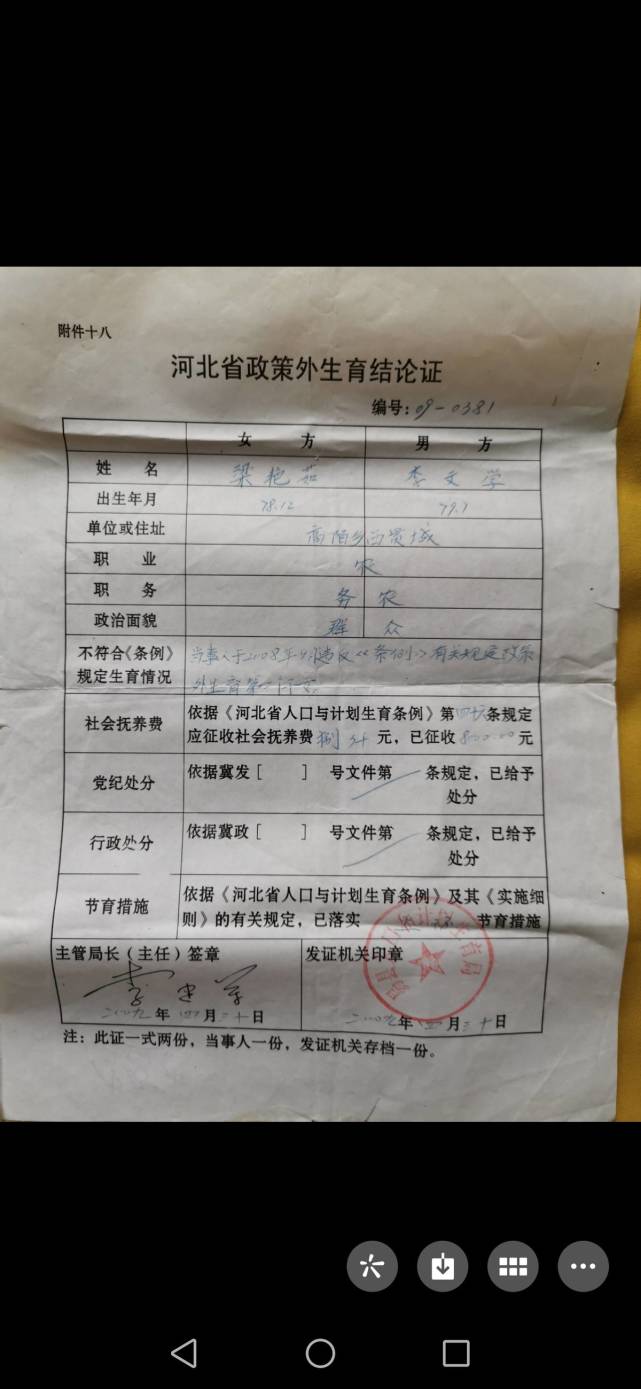 附件十八
河北省政策外生育结论证
编号：09-0381
女 方 男 方
姓 名 梁艳茹 李文学
出生年月 78.12 79.7
单位或住址 高陌乡西贯城
职 业 农
职 务 务农
政治面貌 群众
不符合《条例》 当事人于2008年 违反《条例》有关规定政策
规定生育情况 外生育第一个
社会抚养费 依据《河北省人口与计划生育条例》第 条规定
应征收社会抚养费捌千元，已征收8000.00元
党纪处分 依据冀发［ ］ 号文件第 条规定，已给予
处分
行政处分 依据冀政［ ］ 号文件第 条规定，已给予
处分
节育措施 依据《河北省人口与计划生育条例》及其《实施细
则》的有关规定，已落实 节育措施
主管局长（主任）签章 发证机关印章
二00九年四月二十日 二00九年四月二十日
注：此证一式两份，当事人一份，发证机关存档一份。